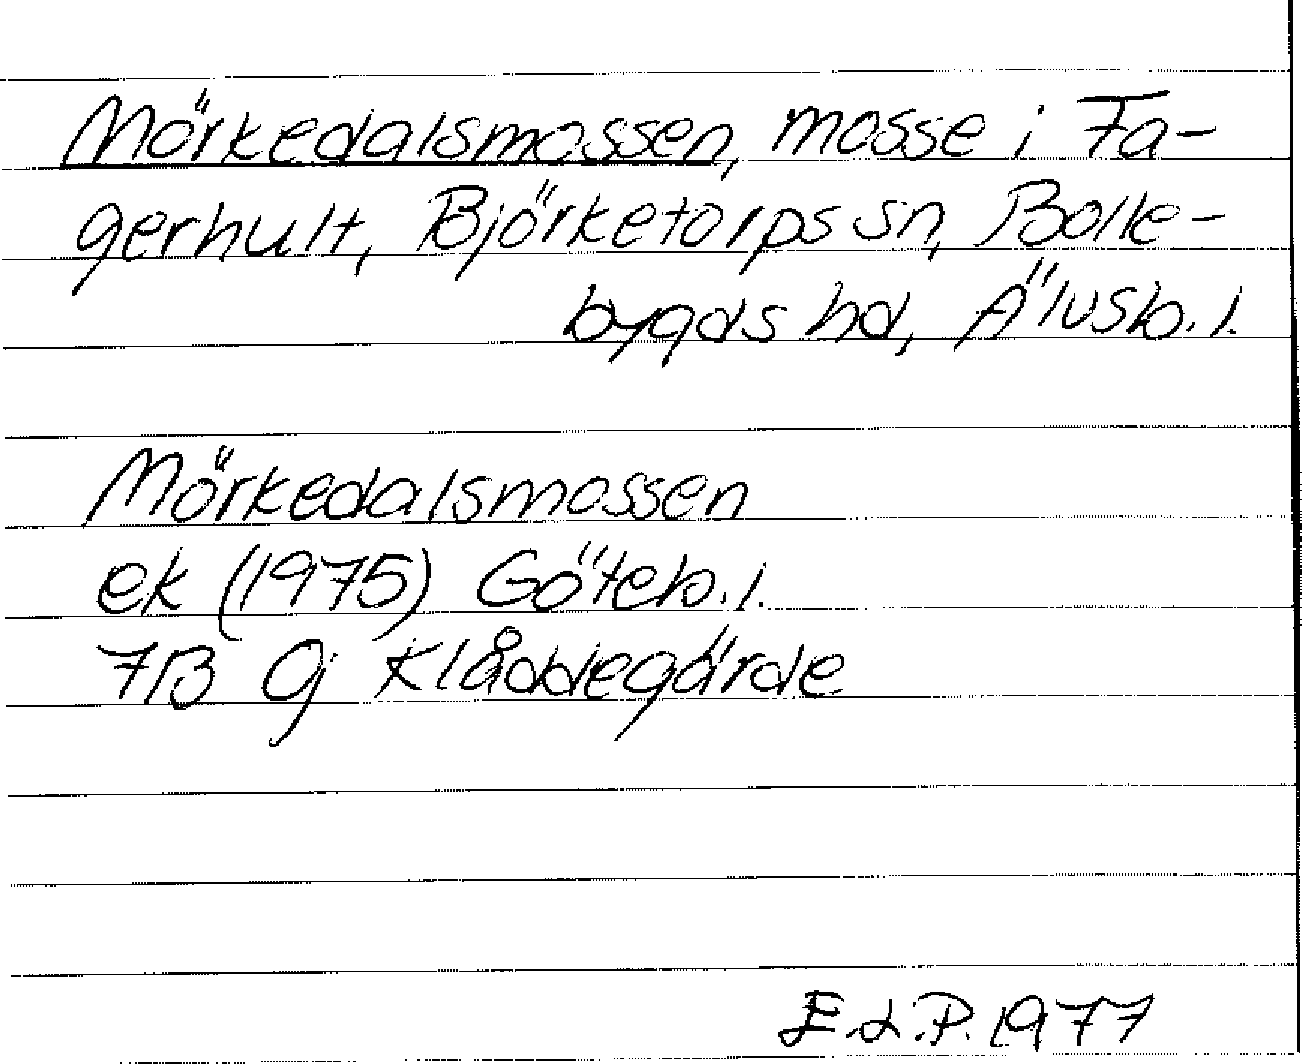 Mörkedalsmossen, mosse i Fa-
gerhult, Björketorps sn, Bolle-
bygds hd, Älvsb. l.
Mörkedalsmossen
ek (1975) Göteb. l.
7B 9j Klåddegärde
E.L.P. 1977